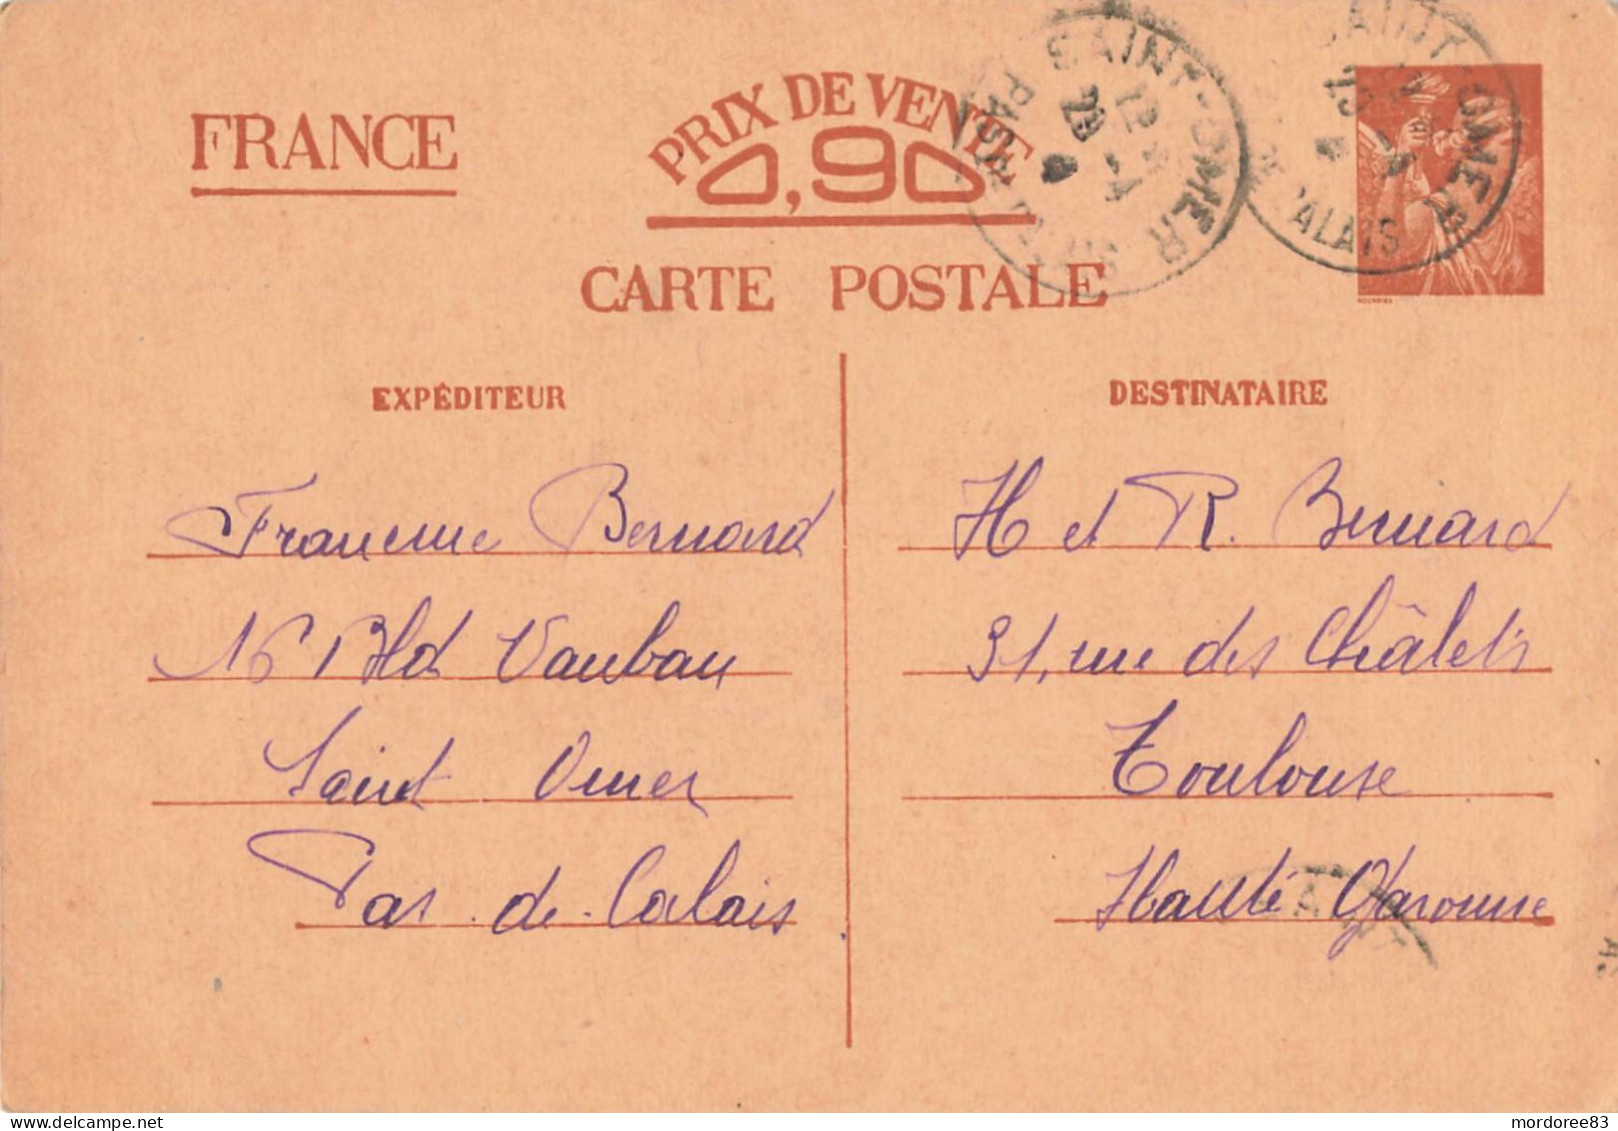 FRANCE
PRIX DE VENTE
0,90
CARTE POSTALE
SAINT-OMER
PAS DE CALAIS
12
SAINT-OMER
CALAIS
EXPÉDITEUR
Francine Bernard
16 Bld Vauban
Saint Omer
Pas-de-Calais
DESTINATAIRE
H et R. Bernard
31, rue des Châlets
Toulouse
Haute Garonne
mordoree83